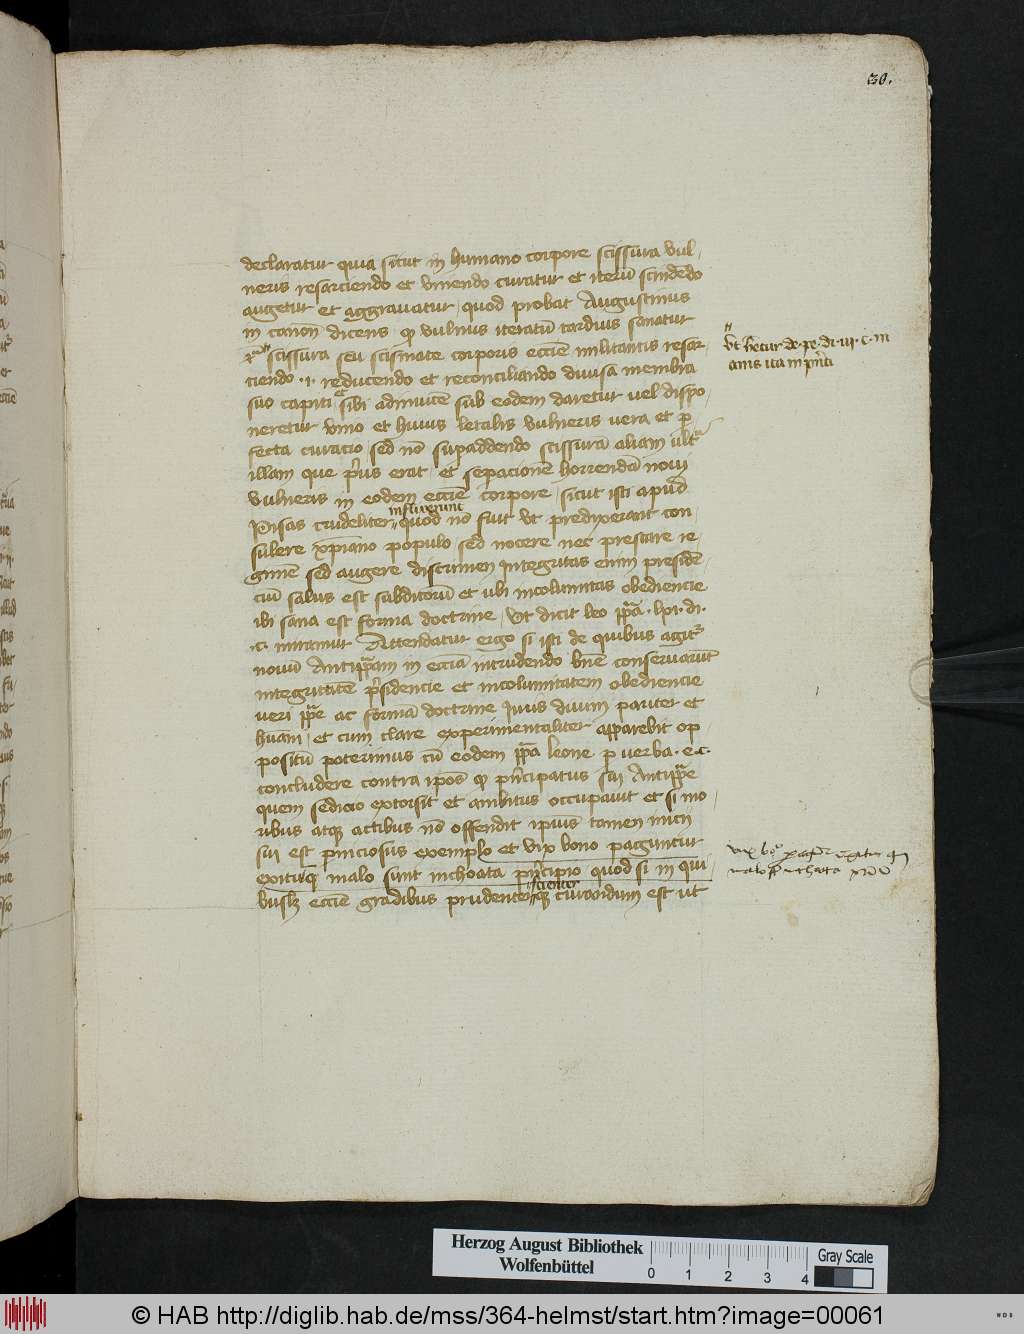 30.
declaratur quia sicut in humano corpore scissura vul-
neris resarciendo et vniendo curatur et iterū scindēdo
augetur et aggrauatur quod probat Augustinus
in canon̄ dicens ꝙ vulnus iteratū tardius sanatur
scissura seu scismate corporis ecc̄ie militantis resar-
ciendo .i. reducendo et reconciliando diuisa membra
suo capiti et sibi adinuicē sub eodem daretur uel dispo-
neretur vino et huius letalis vulneris vera et ꝑ-
fecta curacio sed nō supaddendo scissurā aliam vlt̄
illam que prius erat et sepacionē horrendā noui
vulneris in eodem ecc̄ie corpore sicut isti apud
Pisas crudeliter inflixerunt quod nō fuit vt predixerant con-
sulere xp̄iano populo sed nocere nec prestare re-
gimē sed augere discrimen integritas enim presidē-
ciū salus est subditorū et vbi incolumitas obediencie
ibi sana est forma doctrine Vt dicit leo pp̄a . lxi . di .
.c. miramur Attendatur ergo si isti de quibus agit̄
nouū Antipp̄am in ecc̄ia intrudendo bn̄e conseruarūt
integritatē p̄sidencie et incolumitatem obediencie
veri pp̄e ac formā doctrine Iuris diuini pariter et
humani et cum clare experimentaliter apparebit op-
positū poterimus cū eodem pp̄a leone ꝑ verba . e . c .
concludere contra ip̄os ꝙ pn̄cipatus sui Antipp̄e
quem sedicio extorsit et ambitus occupauit et si mo-
ribus atqꝫ actibus nō offendit ipsius tamen inicii
sui est pniciosus exemplo et vix bono paguntur
exituqꝫ malo sunt inchoata pn̄cipio quod si in qui-
buslꝫ ecc̄ie gradibus prudenter scienterqꝫ curandum est ut
vt hetur de . pe . di . iii . c . in
anis ita in pn̄ti